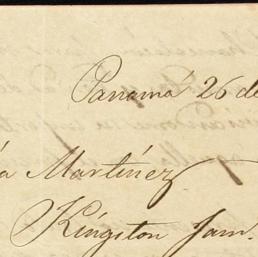 Panamá 26 de
a Martínez
Kingston Jam.